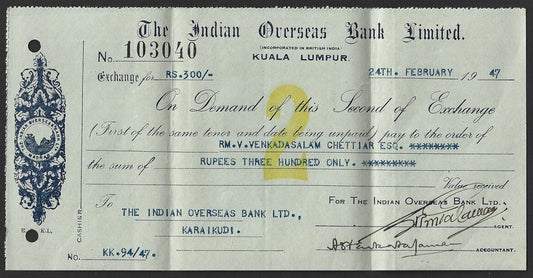 The Indian Overseas Bank Limited.
(INCORPORATED IN BRITISH INDIA)
No. 103040
KUALA LUMPUR.
Exchange for RS.300/-
24TH. FEBRUARY 1947
2
On Demand of this Second of Exchange
(First of the same tenor and date being unpaid) pay to the order of
RM.V.VENKADASALAM CHETTIAR ESQ. ********
the sum of RUPEES THREE HUNDRED ONLY. ********
Value received
To
FOR THE INDIAN OVERSEAS BANK LTD.,
THE INDIAN OVERSEAS BANK LTD.,
KARAIKUDI.
AGENT.
CASHIER
ACCOUNTANT.
No. KK.94/47.